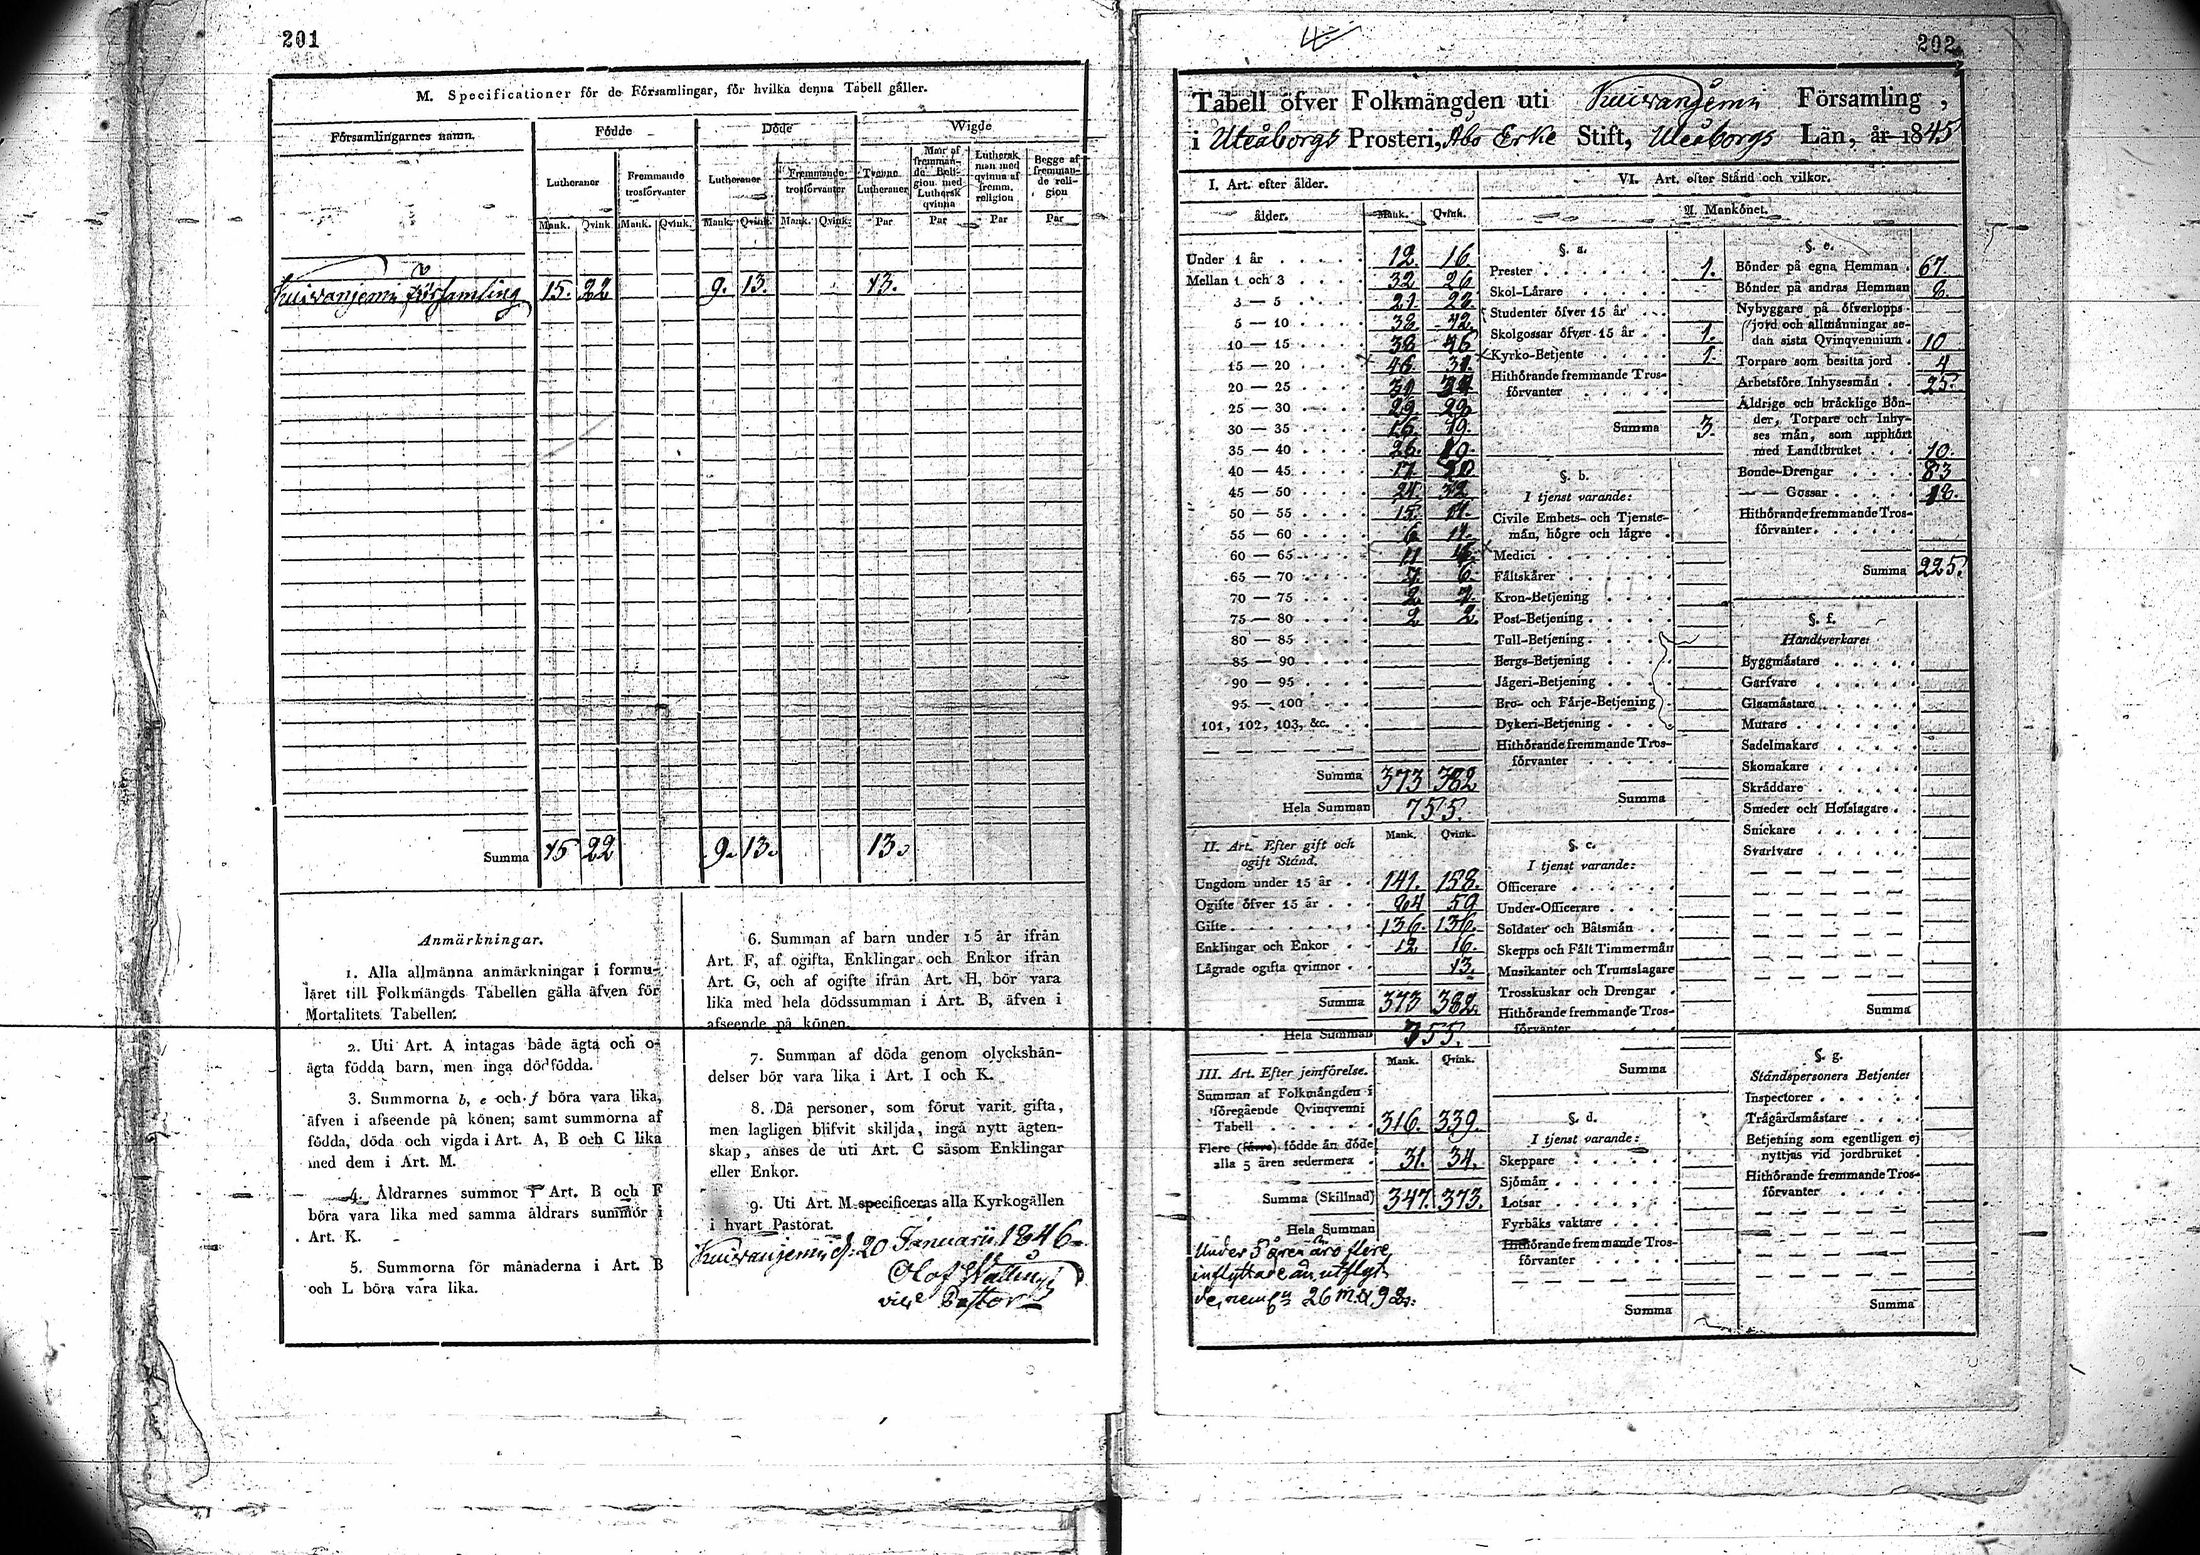 201
M. Specificationer för de Församlingar, för hvilka denna Tabell gäller.
Församlingarnes namn.
Födde
Döde
Wigde
Lutheraner
Fremmande trosförvanter
Lutheraner
Fremmande trosförvanter
Tvenne Lutheraner
Man af fremmande Religion med Luthersk qvinna
Luthersk man med qvinna af fremm. religion
Begge af fremmande religion
Mank. Qvink. Mank. Qvink. Mank. Qvink. Mank. Qvink. Par Par Par Par
Kuivaniemi Församling 15. 22 9. 13. 13.
Summa 15 22 9. 13. 13.
Anmärkningar.
1. Alla allmänna anmärkningar i formu-
läret till Folkmängds Tabellen gälla äfven för
Mortalitets Tabellen.
2. Uti Art. A intagas både ägta och o-
ägta födda barn, men inga dödfödda.
3. Summorna b, e och f böra vara lika,
äfven i afseende på könen; samt summorna af
födda, döda och vigda i Art. A, B och C lika
med dem i Art. M.
4. Åldrarnes summor i Art. B och F
böra vara lika med samma åldrars summor i
Art. K.
5. Summorna för månaderna i Art. B
och L böra vara lika.
6. Summan af barn under 15 år ifrån
Art. F, af ogifta, Enklingar och Enkor ifrån
Art. G, och af ogifte ifrån Art. H, bör vara
lika med hela dödssumman i Art. B, äfven i
afseende på könen.
7. Summan af döda genom olyckshän-
delser bör vara lika i Art. I och K.
8. Då personer, som förut varit gifta,
men lagligen blifvit skiljda, ingå nytt ägten-
skap, anses de uti Art. C såsom Enklingar
eller Enkor.
9. Uti Art. M specificeras alla Kyrkogällen
i hvart Pastorat.
Kuivaniemi d. 20 Januarii 1846.
Olof
vice Pastor
202
Tabell öfver Folkmängden uti Kuivaniemi Församling,
i Uleåborgs Prosteri, Åbo Erke Stift, Uleåborgs Län, år 1845
I. Art. efter ålder.
ålder. Mank. Qvink.
Under 1 år 12. 16
Mellan 1 och 3 32 26
3 — 5 21 28
5 — 10 38 42
10 — 15 38 46
15 — 20 46 31.
20 — 25
25 — 30 29 29
30 — 35 16 19.
35 — 40 26. 19.
40 — 45 17
45 — 50 24. 32
50 — 55 15. 17.
55 — 60 6 11.
60 — 65 11
65 — 70 7. 6.
70 — 75 2 7.
75 — 80 2 2.
80 — 85
85 — 90
90 — 95
95 — 100
101, 102, 103, &c.
Summa 373 382
Hela Summan 755.
II. Art. Efter gift och
ogift Stånd.
Mank. Qvink.
Ungdom under 15 år 141. 158.
Ogifte öfver 15 år 84 59
Gifte 136. 136.
Enklingar och Enkor 12 16.
Lägrade ogifta qvinnor 13.
Summa 373 382.
Hela Summan 755.
III. Art. Efter jemförelse.
Mank. Qvink.
Summan af Folkmängden i
föregående Qvinqvenni
Tabell 316. 339.
Flere (färre) födde än döde
alla 5 åren sedermera 31. 34.
Summa (Skillnad) 347. 373.
Hela Summan
Under 5 åren äro flere
inflyttade än utflyt
26 m. & 9 q.
VI. Art. efter Stånd och vilkor.
A. Mankönet.
§. a.
Prester 1.
Skol-Lärare
Studenter öfver 15 år
Skolgossar öfver 15 år 1.
Kyrko-Betjente 1.
Hithörande fremmande Tros-
förvanter
Summa 3.
§. b.
I tjenst varande:
Civile Embets- och Tjenste-
män, högre och lägre
Medici
Fältskärer
Kron-Betjening
Post-Betjening
Tull-Betjening
Bergs-Betjening
Jägeri-Betjening
Bro- och Färje-Betjening
Dykeri-Betjening
Hithörande fremmande Tros-
förvanter
Summa
§. c.
I tjenst varande:
Officerare
Under-Officerare
Soldater och Båtsmän
Skepps och Fält Timmermän
Musikanter och Trumslagare
Trosskuskar och Drengar
Hithörande fremmande Tros-
förvanter
Summa
§. d.
I tjenst varande:
Skeppare
Sjömän
Lotsar
Fyrbåks vaktare
Hithörande fremmande Tros-
förvanter
Summa
§. e.
Bönder på egna Hemman 67.
Bönder på andras Hemman 8.
Nybyggare på öfverlopps-
jord och allmänningar se-
dan sista Qvinqvennium 10
Torpare som besitta jord 4
Arbetsföre Inhysesmän 25.
Åldrige och bräcklige Bön-
der, Torpare och Inhy-
ses män, som upphört
med Landtbruket 10.
Bonde-Drengar 83
— — Gossar 18.
Hithörande fremmande Tros-
förvanter
Summa 225.
§. f.
Handtverkare:
Byggmästare
Garfvare
Glasmästare
Murare
Sadelmakare
Skomakare
Skräddare
Smeder och Hofslagare
Snickare
Svarfvare
Summa
§. g.
Ståndspersoners Betjente:
Inspectorer
Trägårdsmästare
Betjening som egentligen ej
nyttjas vid jordbruket
Hithörande fremmande Tros-
förvanter
Summa